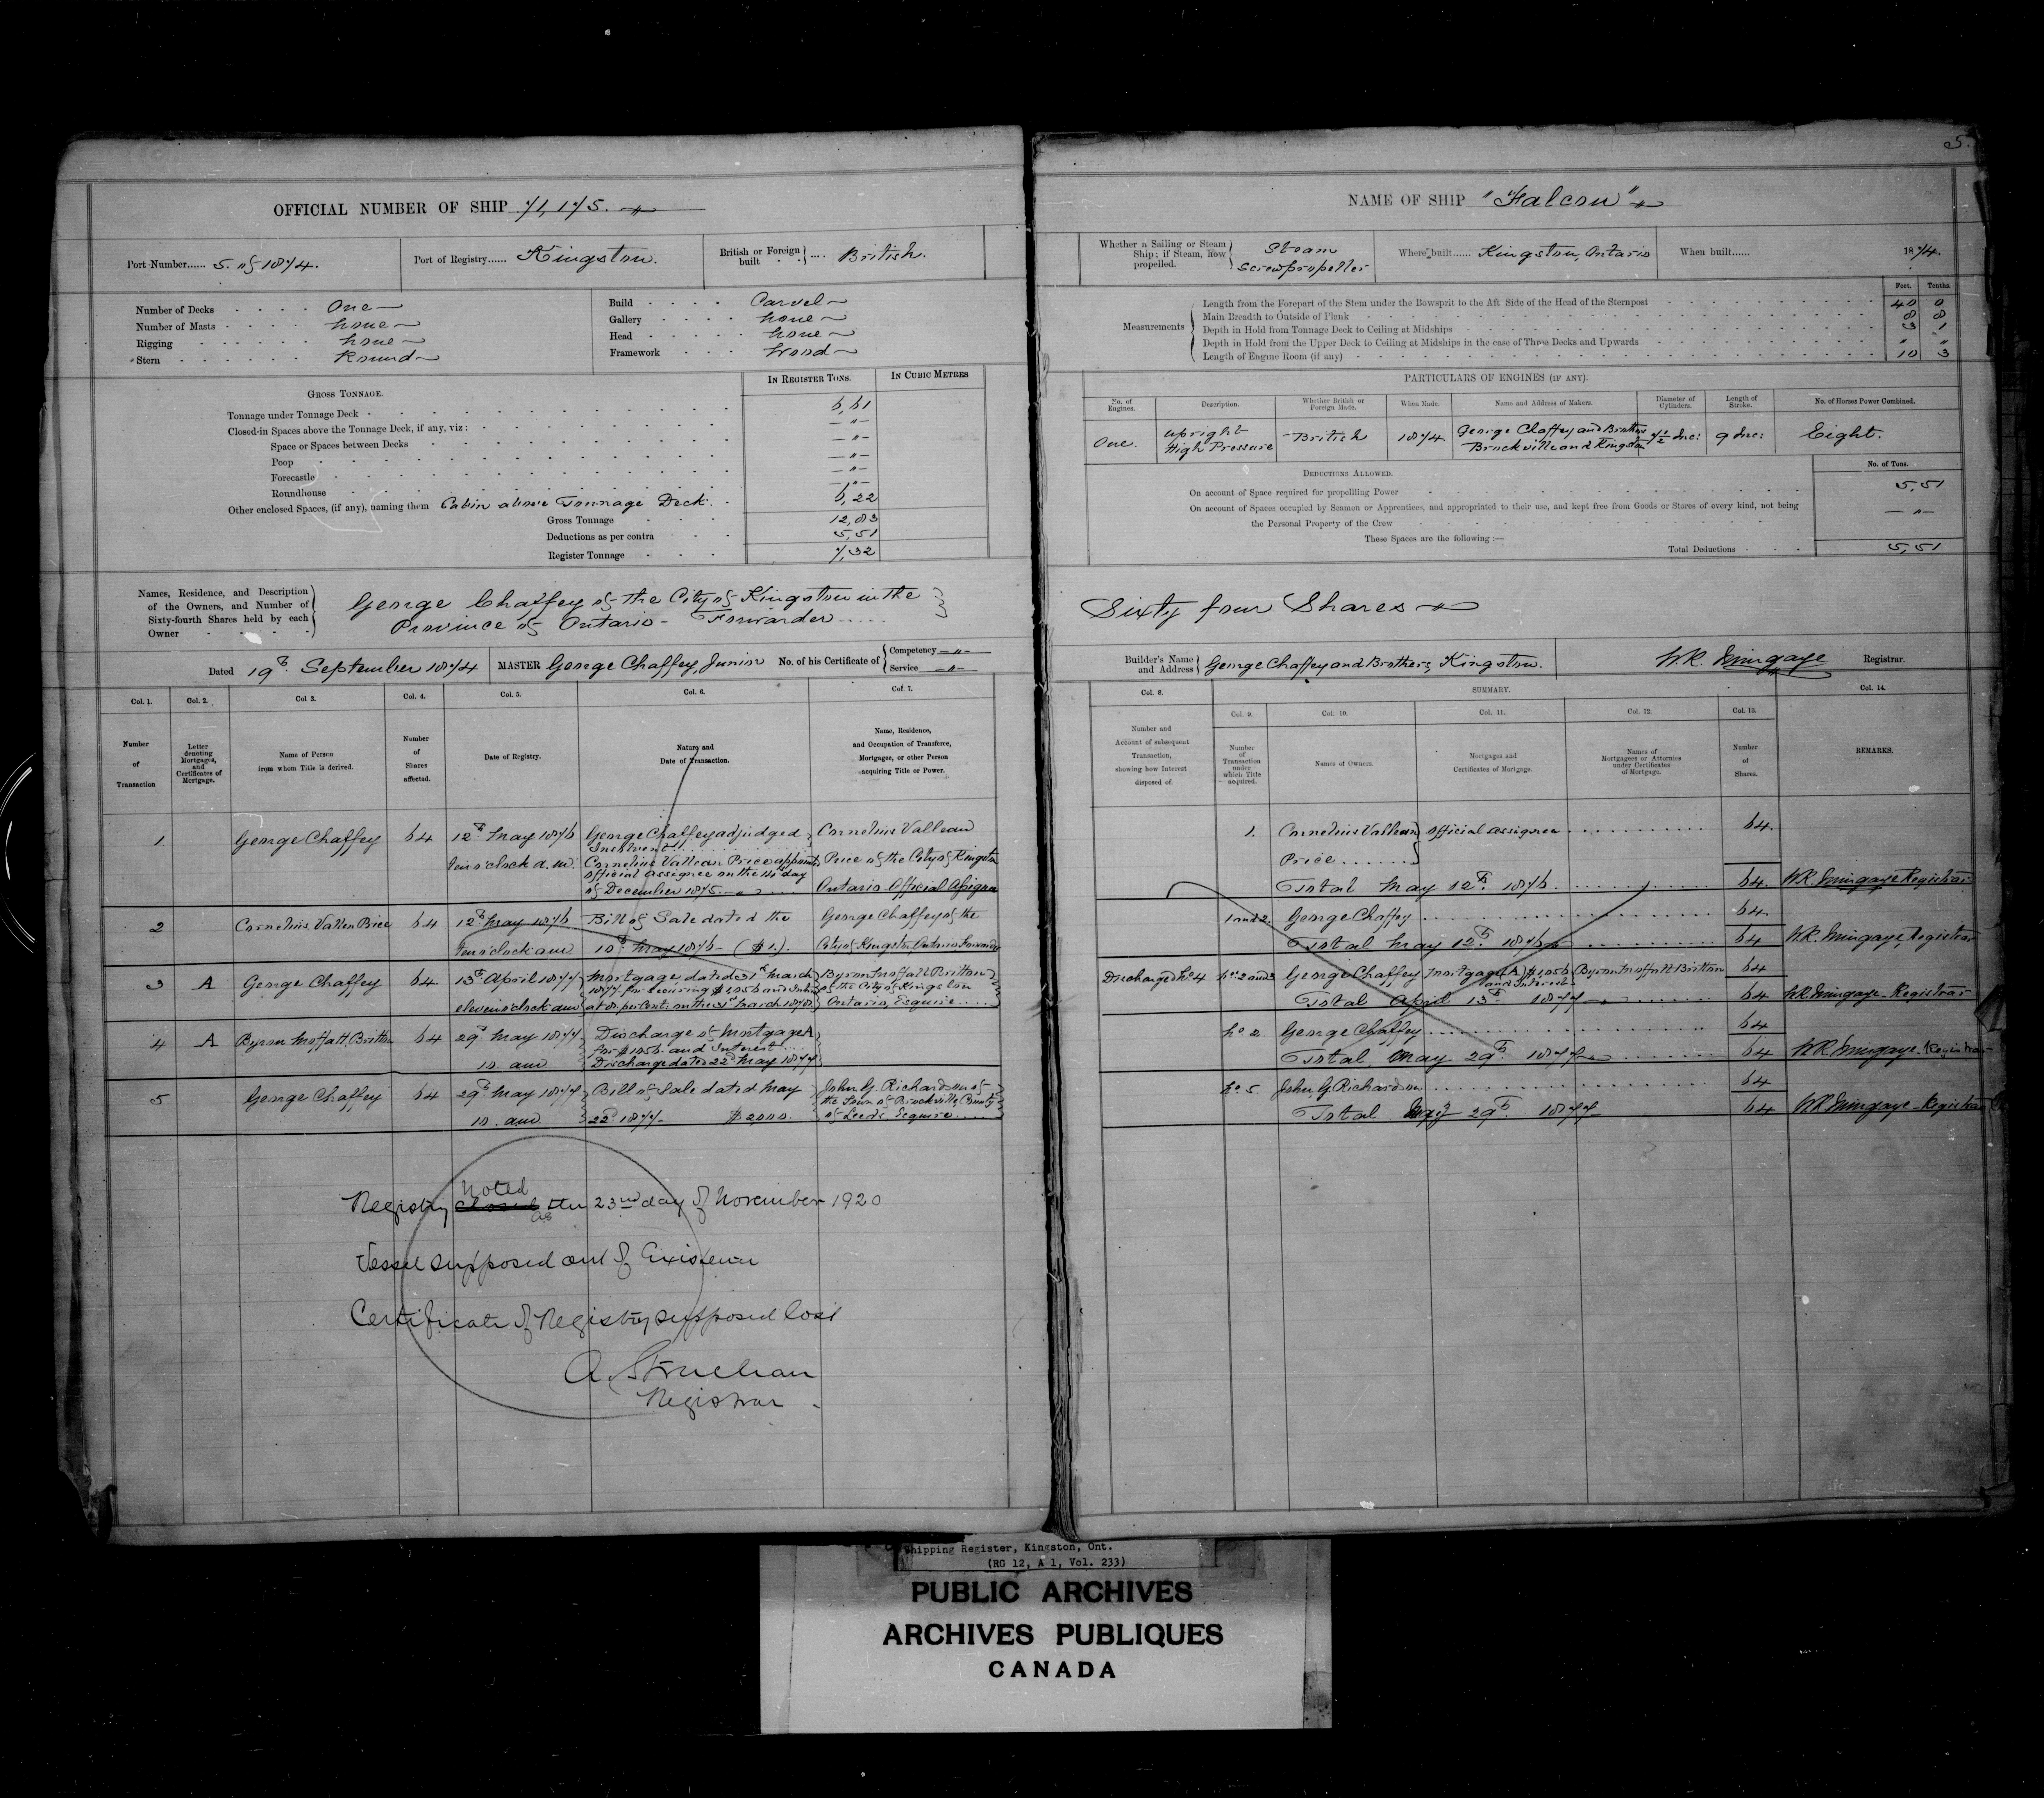 OFFICIAL NUMBER OF SHIP 71,175.
Port Number...... 5. of 1874.
Port of Registry...... Kingston.
British or Foreign built .... British.
Number of Decks One
Number of Masts none
Rigging none
Stern Round
Build Carvel
Gallery none
Head none
Framework Wood
GROSS TONNAGE.
IN REGISTER TONS.
IN CUBIC METRES
Tonnage under Tonnage Deck 6,61
Closed-in Spaces above the Tonnage Deck, if any, viz: — " —
Space or Spaces between Decks — " —
Poop — " —
Forecastle — " —
Roundhouse — " —
Other enclosed Spaces, (if any), naming them Cabin above Tonnage Deck. 6,22
Gross Tonnage 12,83
Deductions as per contra 5,51
Register Tonnage 7,32
Names, Residence, and Description
of the Owners, and Number of
Sixty-fourth Shares held by each
Owner
George Chaffey of the City of Kingston in the
Province of Ontario - Forwarder
Dated 19th September 1874
MASTER George Chaffey, Junior
No. of his Certificate of
Competency — " —
Service — " —
Col. 1.
Col. 2.
Col 3.
Col. 4.
Col. 5.
Col. 6.
Col. 7.
Number
of
Transaction
Letter
denoting
Mortgages,
and
Certificates of
Mortgage.
Name of Person
from whom Title is derived.
Number
of
Shares
affected.
Date of Registry.
Nature and
Date of Transaction.
Name, Residence,
and Occupation of Transferee,
Mortgagee, or other Person
acquiring Title or Power.
1 George Chaffey 64 12th May 1876 George Chaffey adjudged Cornelius Valleau
Insolvent
ten o'clock a.m. Cornelius Valleau Price appointed Price of the City of Kingston
official assignee on the 14th day
of December 1875. Ontario Official Assignee
2 Cornelius Valleau Price 64 12th May 1876 Bill of Sale dated the George Chaffey of the
ten o'clock am 10th May 1876 - ($1.). City of Kingston Ontario Forwarder
3 A George Chaffey 64 13th April 1877 Mortgage dated 31st March Byron Moffatt Britton
1877 for securing $1,056 and Interest of the City of Kingston
eleven o'clock am at 8 per Cent: on the 31st March 1878. Ontario, Esquire
4 A Byron Moffatt Britton 64 29th May 1877 Discharge of Mortgage A
for $1056. and Interest
10. am Discharge dated 22d May 1877
5 George Chaffey 64 29th May 1877 Bill of Sale dated May John G Richardson of
the Town of Brockville County
10. am 22d 1877 - $2000. of Leeds, Esquire
noted
Registry closed the 23nd day of November 1920
as
Vessel supposed out of Existence
Certificate of Registry supposed lost
A. Strachan
Registrar
5.
NAME OF SHIP "Falcon"
Whether a Sailing or Steam
Ship; if Steam, how
propelled.
Steam
Screwpropeller
Where built...... Kingston, Ontario
When built...... 1874.
Feet. Tenths.
Measurements
Length from the Forepart of the Stem under the Bowsprit to the Aft Side of the Head of the Sternpost 40 0
Main Breadth to Outside of Plank 8 8
Depth in Hold from Tonnage Deck to Ceiling at Midships 3 1
Depth in Hold from the Upper Deck to Ceiling at Midships in the case of Three Decks and Upwards " "
Length of Engine Room (if any) 10 3
PARTICULARS OF ENGINES (IF ANY).
No. of
Engines.
Description.
Whether British or
Foreign Made.
When Made.
Name and Address of Makers.
Diameter of
Cylinders.
Length of
Stroke.
No. of Horses Power Combined.
One. upright
High Pressure
British 1874
George Chaffey and Brothers
Brockville and Kingston
7½ Inc: 9 Inc: Eight.
DEDUCTIONS ALLOWED.
No. of Tons.
On account of Space required for propelling Power 5,51
On account of Spaces occupied by Seamen or Apprentices, and appropriated to their use, and kept free from Goods or Stores of every kind, not being
the Personal Property of the Crew — " —
These Spaces are the following :—
Total Deductions 5,51
Sixty four Shares
Builder's Name
and Address
George Chaffey and Brothers, Kingston.
W.R. Mingaye Registrar.
Col. 8.
SUMMARY.
Col. 14.
Col. 9.
Col. 10.
Col. 11.
Col. 12.
Col. 13.
Number and
Account of subsequent
Transaction,
showing how Interest
disposed of.
Number
of
Transaction
under
which Title
acquired.
Names of Owners.
Mortgages and
Certificates of Mortgage.
Names of
Mortgagees or Attornies
under Certificates
of Mortgage.
Number
of
Shares.
REMARKS.
1. Cornelius Valleau official assignee 64.
Price
Total May 12th 1876. 64. W.R. Mingaye Registrar
1 and 2. George Chaffey 64.
Total May 12th 1876 64 W.R. Mingaye, Registrar
Discharged No. 4 No. 2 and 3 George Chaffey Mortgage (A) $1,056 Byron Moffatt Britton 64
and Interest
Total April 13th 1877 64 W.R. Mingaye - Registrar
No. 2 George Chaffey 64
Total May 29th 1877 64 W.R. Mingaye - Registrar
No. 5 John G Richardson 64
Total May 29th 1877 64 W.R. Mingaye - Registrar
Shipping Register, Kingston, Ont.
(RG 12, A 1, Vol. 233)
PUBLIC ARCHIVES
ARCHIVES PUBLIQUES
CANADA